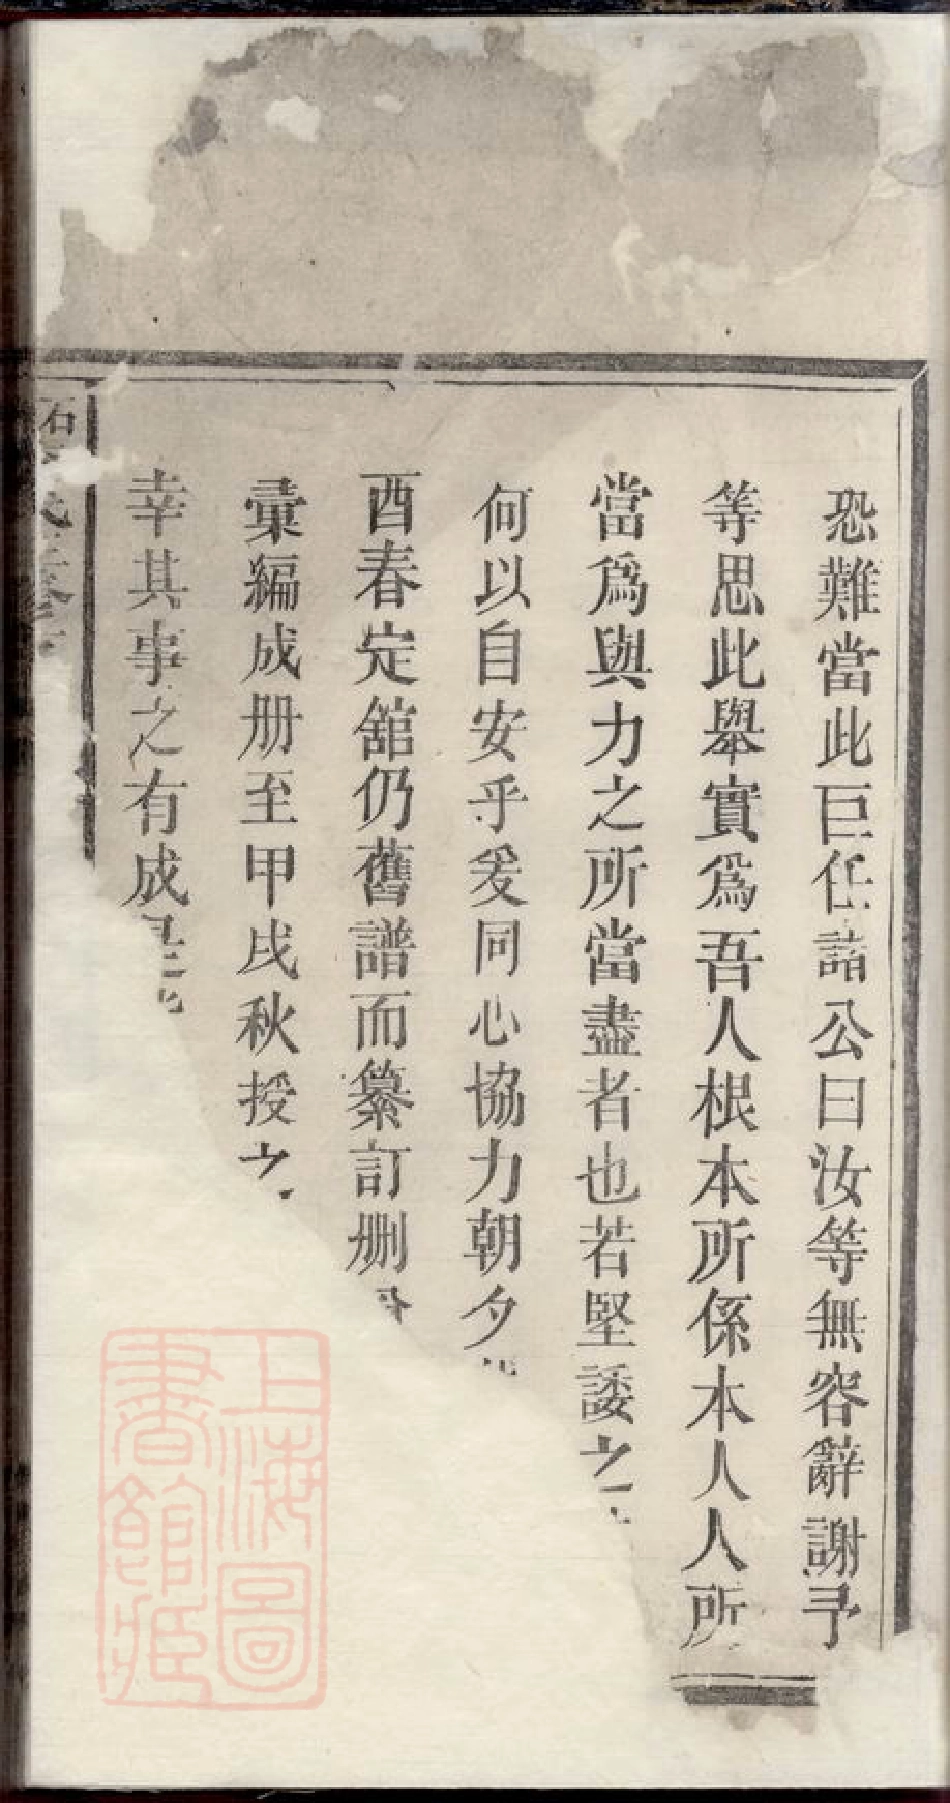 恐難當此巨任諸公曰汝等無容辭謝予
等思此舉實為吾人根本所係本人人所
當為與力之所當盡者也若堅諉之
何以自安乎爰同心協力朝夕
酉春定舘仍舊譜而纂訂刪
彙編成册至甲戌秋授之
幸其事之有成
石
上海圖書館藏